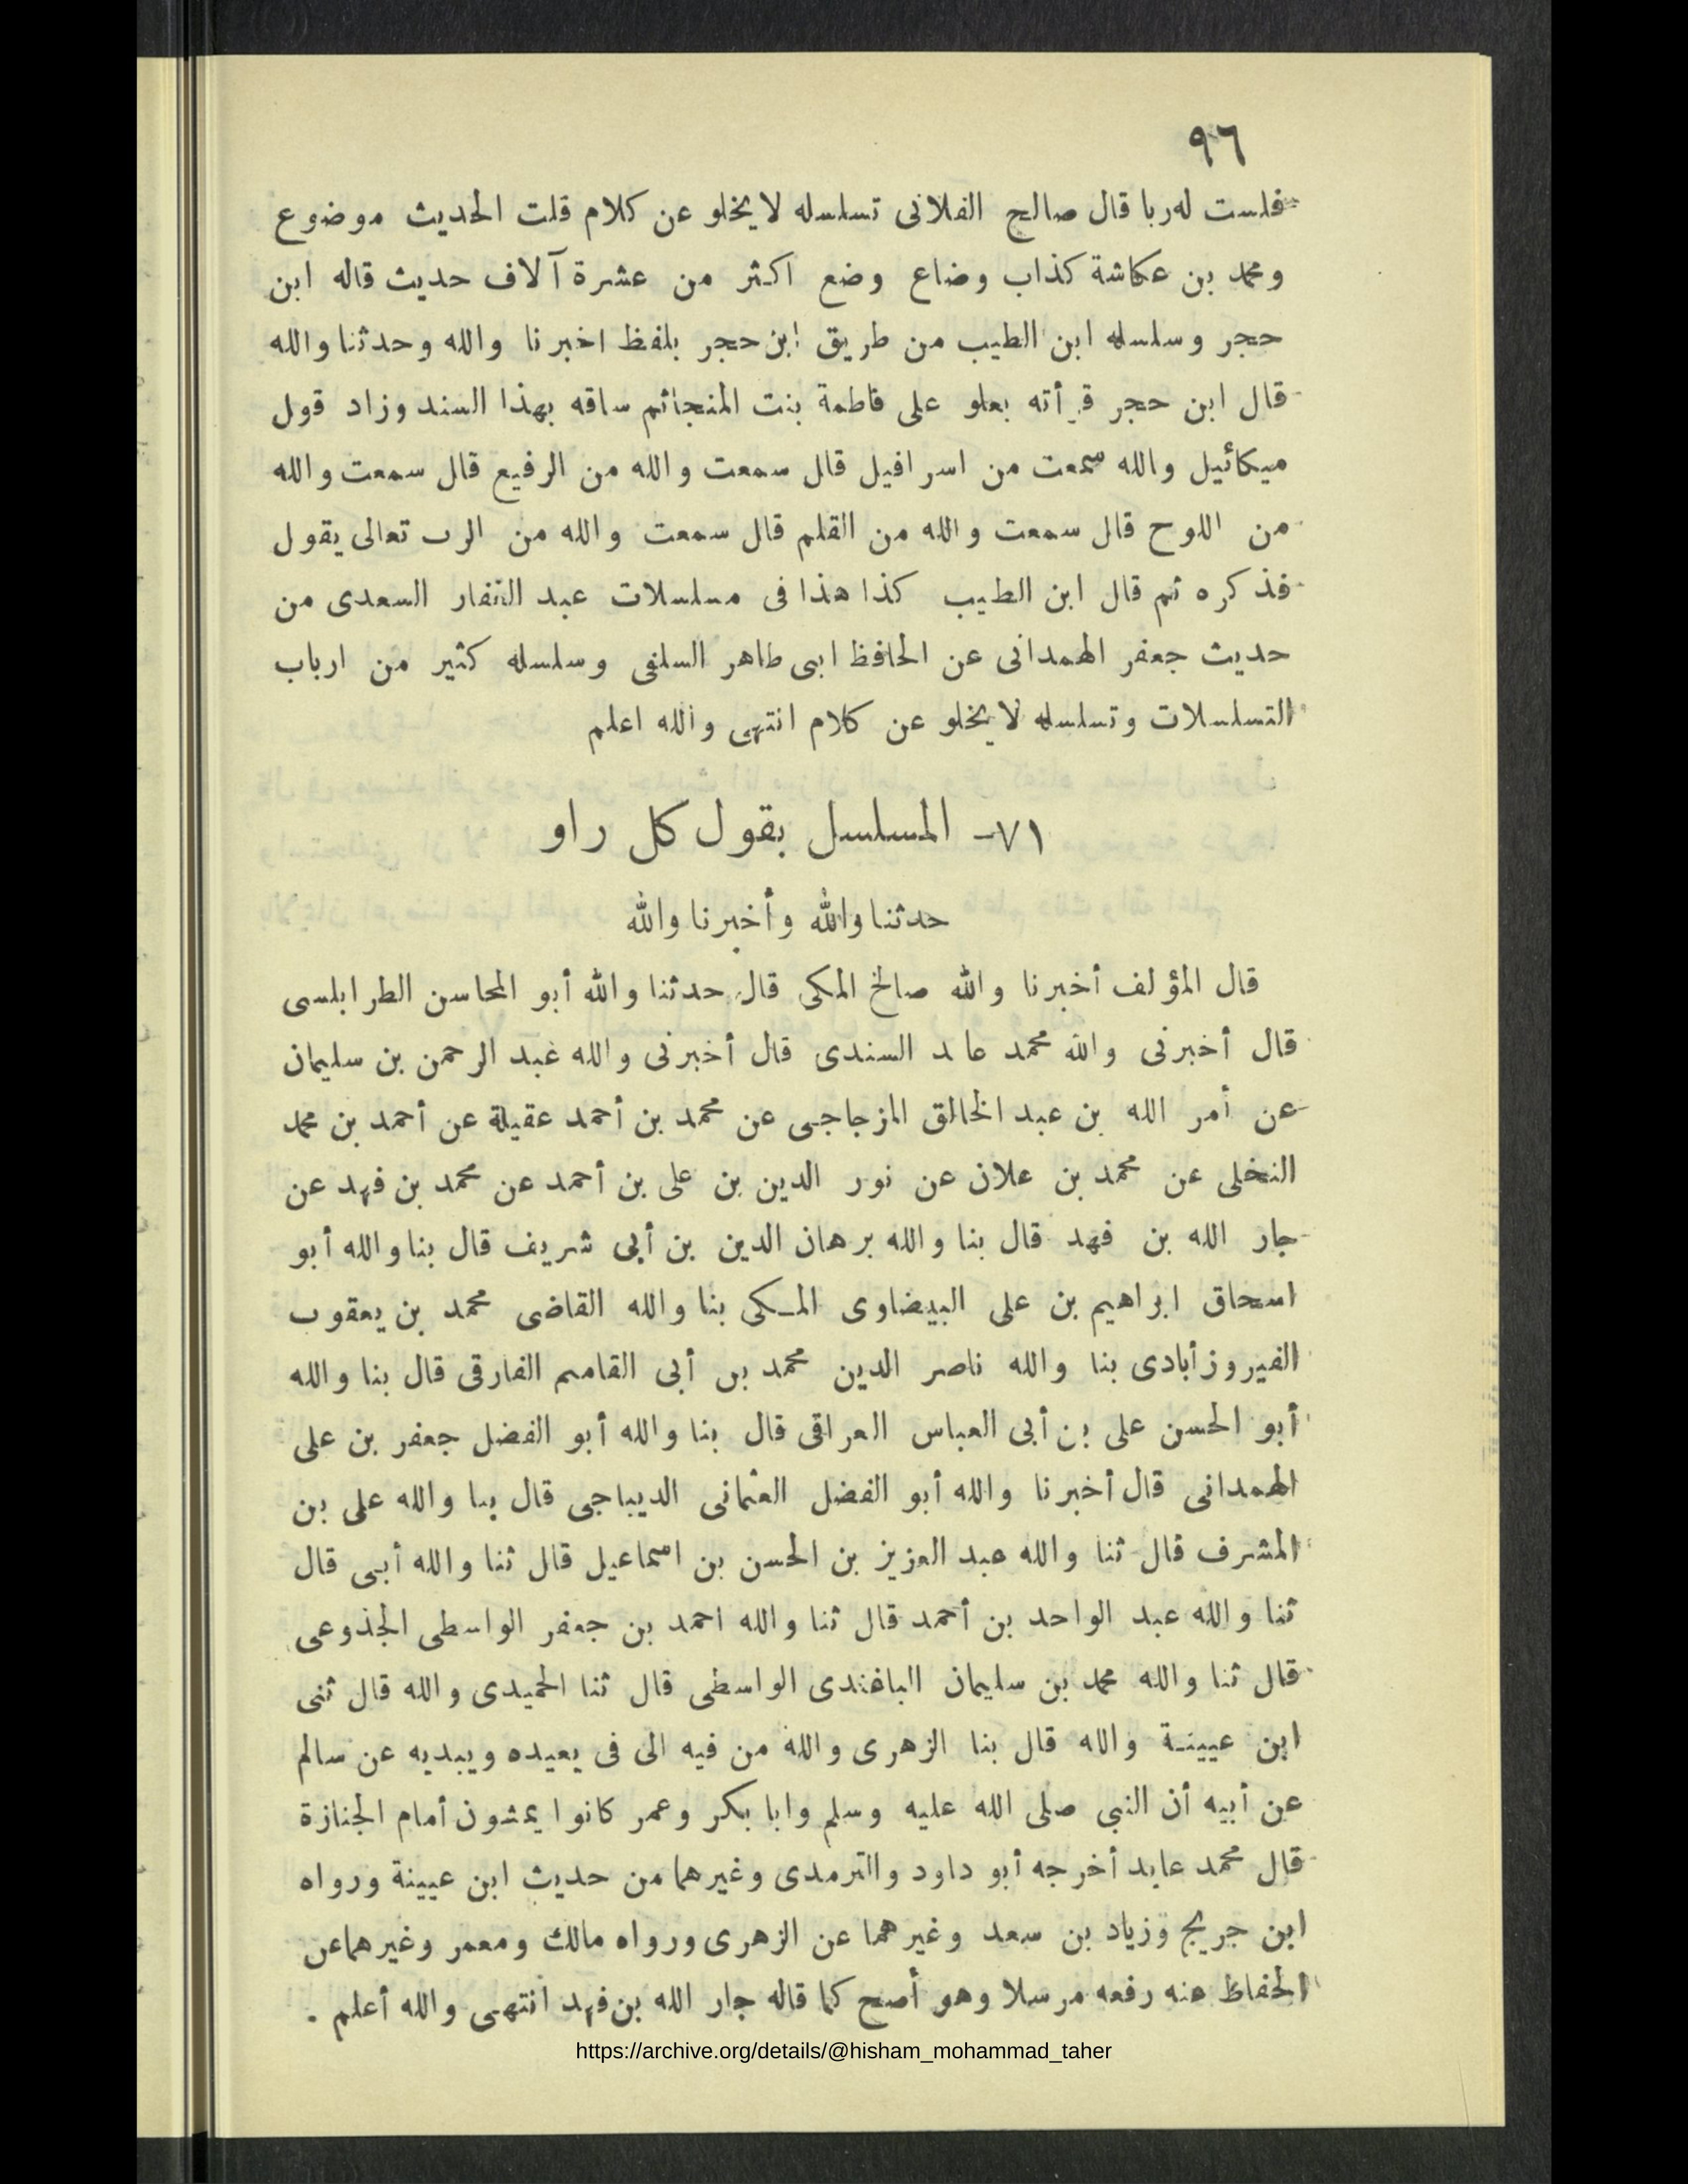 ٩٦
فلست له ربا قال صالح الفلانى تسلسله لا يخلو عن كلام قلت الحديث موضوع
ومحمد بن عكاشة كذاب وضاع وضع اكثر من عشرة آلاف حديث قاله ابن
حجر وسلسله ابن الطيب من طريق ابن حجر بلفظ اخبرنا والله وحدثنا والله
قال ابن حجر قرأته بعلو على فاطمة بنت المنجا ثم ساقه بهذا السند وزاد قول
ميكائيل والله سمعت من اسرافيل قال سمعت والله من الرفيع قال سمعت والله
من اللوح قال سمعت والله من القلم قال سمعت والله من الرب تعالى يقول
فذكره ثم قال ابن الطيب كذا هذا فى مسلسلات عبد الغفار السعدى من
حديث جعفر الهمدانى عن الحافظ ابى طاهر السلفى وسلسله كثير من ارباب
التسلسلات وتسلسله لا يخلو عن كلام انتهى والله اعلم
٧١- المسلسل بقول كل راو
حدثنا والله وأخبرنا والله
قال المؤلف أخبرنا والله صالح المكى قال حدثنا والله أبو المحاسن الطرابلسى
قال أخبرنى والله محمد عابد السندى قال أخبرنى والله عبد الرحمن بن سليمان
عن أمر الله بن عبد الخالق المزجاجى عن محمد بن أحمد عقيلة عن أحمد بن محمد
النخلى عن محمد بن علان عن نور الدين بن على بن أحمد عن محمد بن فهد عن
جار الله بن فهد قال بنا والله برهان الدين بن أبى شريف قال بنا والله أبو
اسحاق ابراهيم بن على البيضاوى المكى بنا والله القاضى محمد بن يعقوب
الفيروزأبادى بنا والله ناصر الدين محمد بن أبى القاسم الفارقى قال بنا والله
أبو الحسن على بن أبى العباس العراقى قال بنا والله أبو الفضل جعفر بن على
الهمدانى قال أخبرنا والله أبو الفضل العثمانى الديباجى قال بنا والله على بن
المشرف قال ثنا والله عبد العزيز بن الحسن بن اسماعيل قال ثنا والله أبى قال
ثنا والله عبد الواحد بن أحمد قال ثنا والله احمد بن جعفر الواسطى الجذوعى
قال ثنا والله محمد بن سليمان الباغندى الواسطى قال ثنا الحميدى والله قال ثنى
ابن عيينة والله قال بنا الزهرى والله من فيه الى فى يعيده ويبديه عن سالم
عن أبيه أن النبى صلى الله عليه وسلم وابا بكر وعمر كانوا يمشون أمام الجنازة
قال محمد عابد أخرجه أبو داود والترمدى وغيرهما من حديث ابن عيينة ورواه
ابن جريج وزياد بن سعد وغيرهما عن الزهرى ورواه مالك ومعمر وغيرهما عن
الحفاظ عنه رفعه مرسلا وهو أصح كما قاله جار الله بن فهد انتهى والله أعلم .
https://archive.org/details/@hisham_mohammad_taher